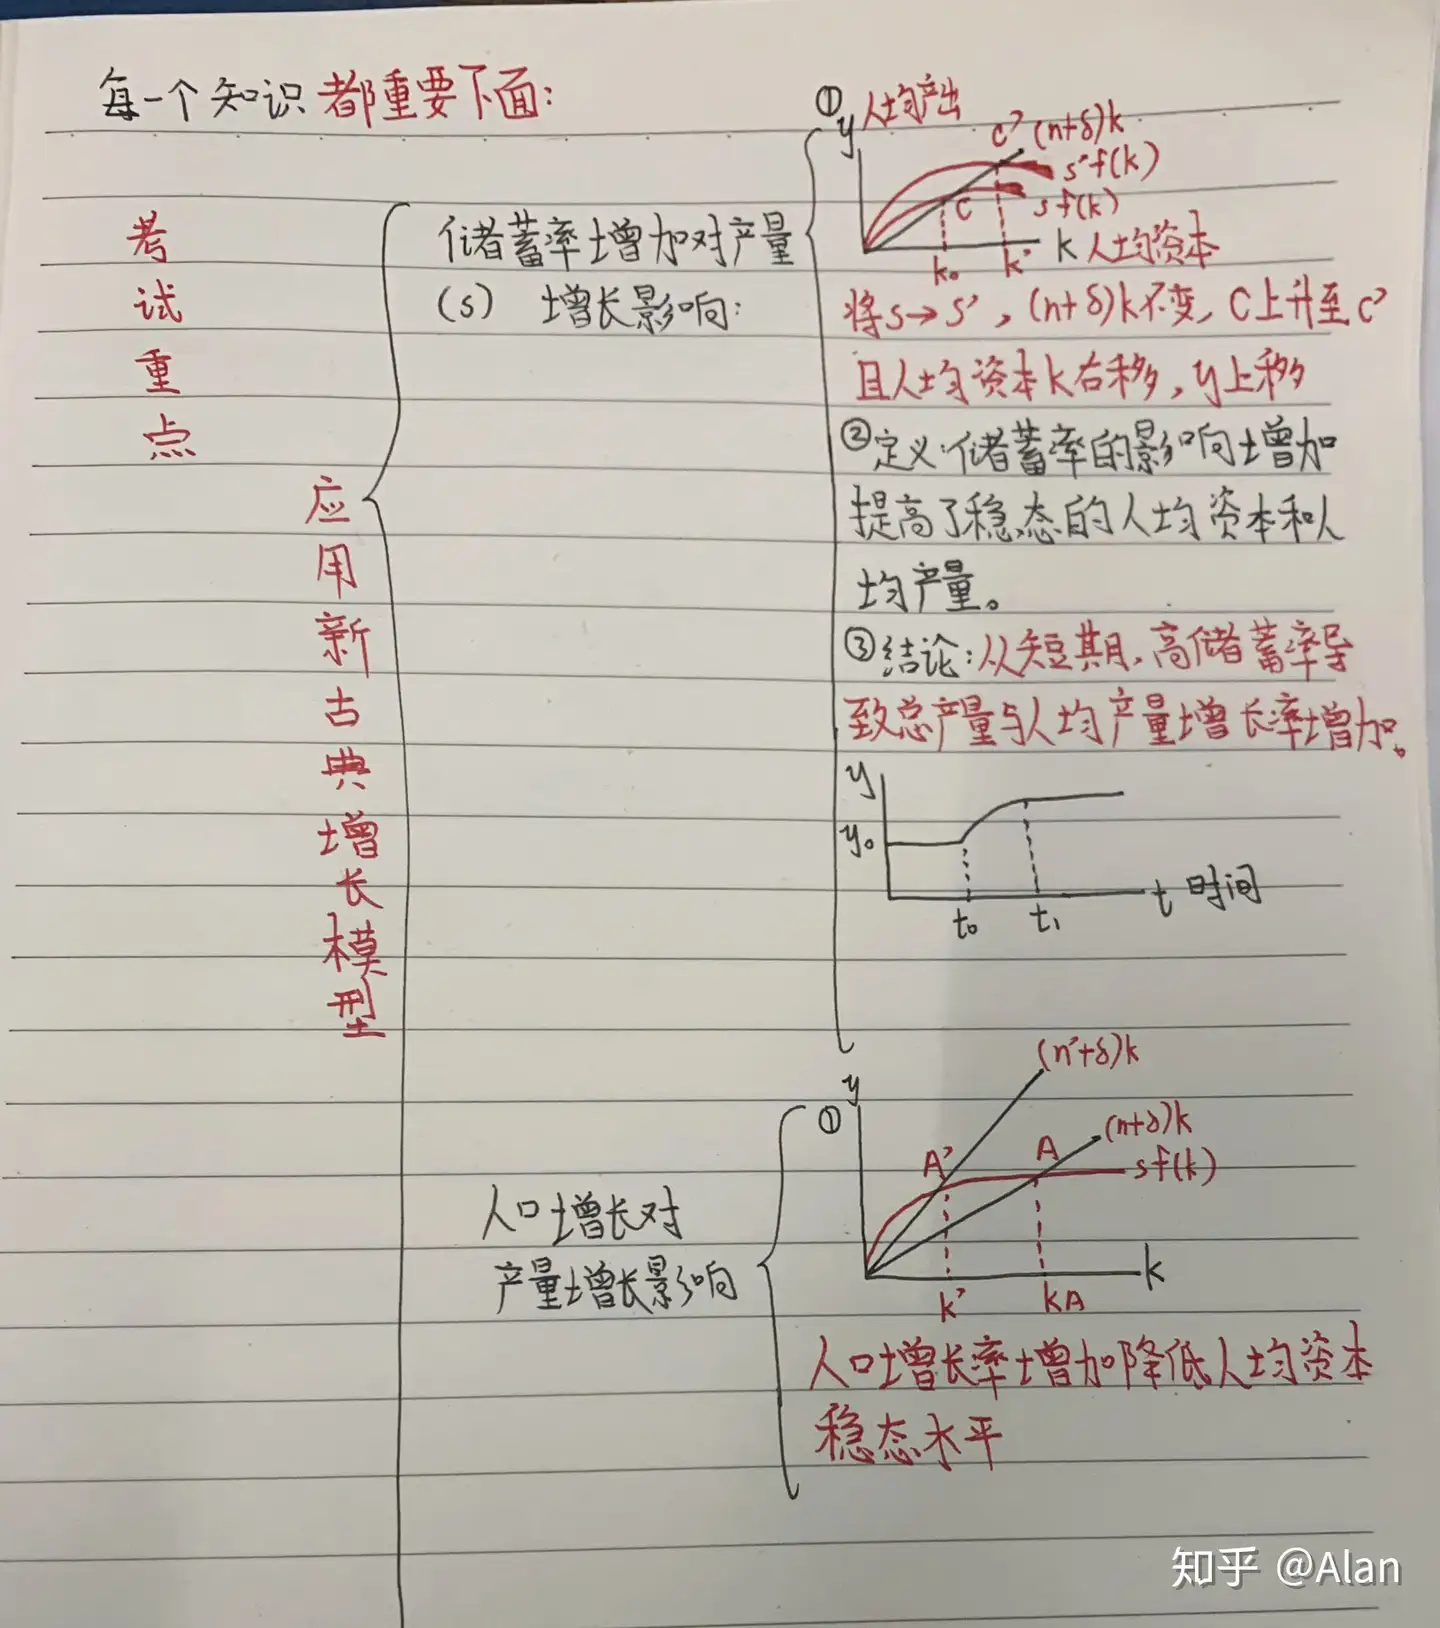 每一个知识都重要下面:
考试重点
应用新古典增长模型
储蓄率增加对产量
(s) 增长影响:
① 人均产出
y
C' (n+δ)k
s'f(k)
C sf(k)
k 人均资本
k₀ k'
将s→s', (n+δ)k不变, C上升至C'
且人均资本k右移, y上移
②定义:储蓄率的影响增加
提高了稳态的人均资本和人
均产量。
③结论:从短期,高储蓄率导
致总产量与人均产量增长率增加。
y
y₀
t 时间
t₀ t₁
人口增长对
产量增长影响
① y
(n'+δ)k
(n+δ)k
A' A
sf(k)
k
k' kA
人口增长率增加降低人均资本
稳态水平
知乎 @Alan